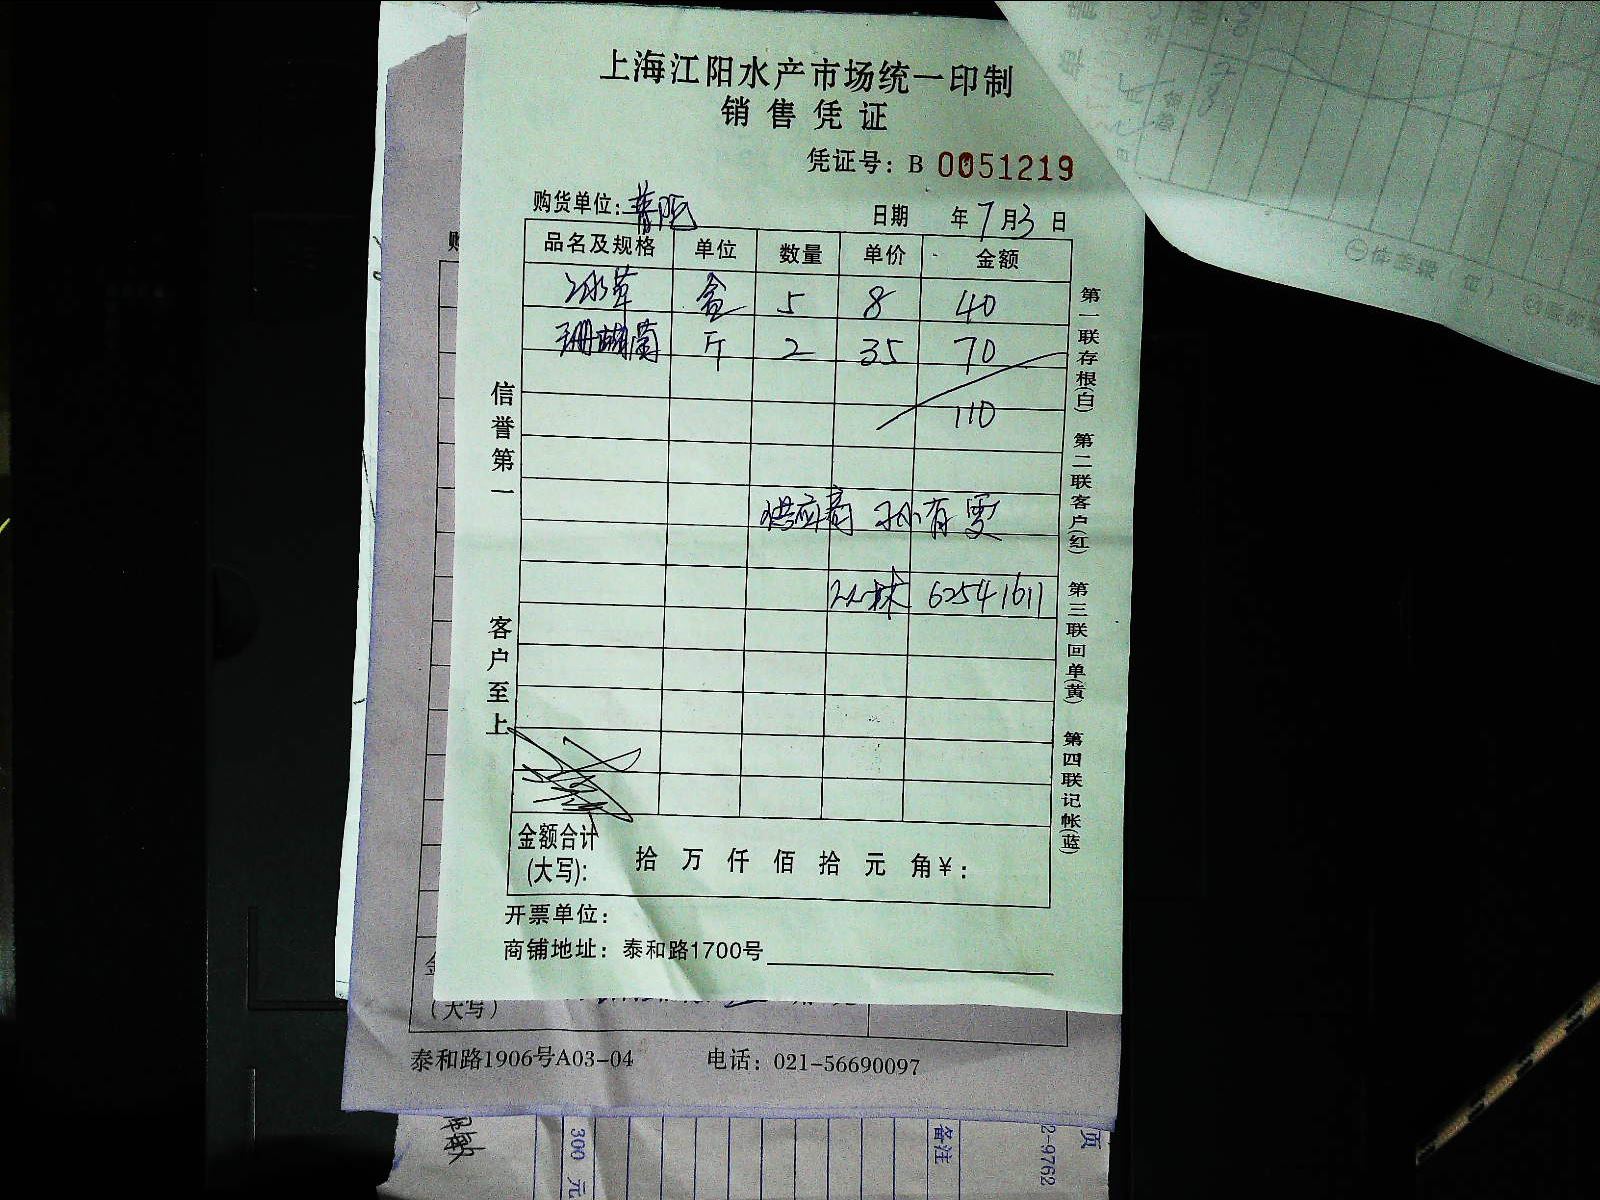 上海江阳水产市场统一印制
销售凭证
凭证号：B 0051219
购货单位：
日期 年7月3日
品名及规格 单位 数量 单价 金额
冰草 盒 5 8 40
珊瑚菌 斤 2 35 70
110
供应商 孙有雯
62541611
信誉第一
客户至上
第一联存根(白) 第二联客户(红) 第三联回单(黄) 第四联记帐(蓝)
金额合计
(大写)： 拾 万 仟 佰 拾 元 角 ¥：
开票单位：
商铺地址：泰和路1700号
(大写)
泰和路1906号A03-04 电话：021-56690097
300 元
备注
2-9762
页